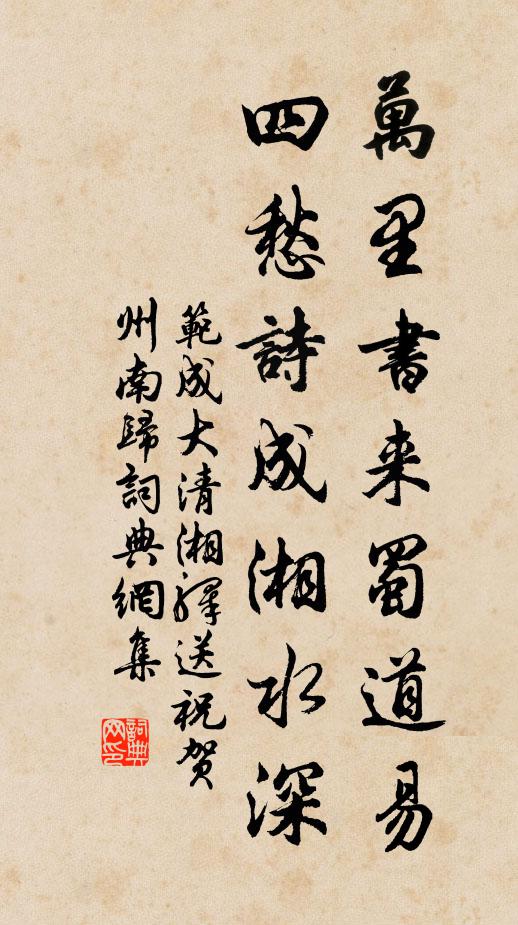 萬里書来蜀道易
四愁詩成湘水深
範成大清湘驛送祝賀
州南歸詞典網集
詞典網印